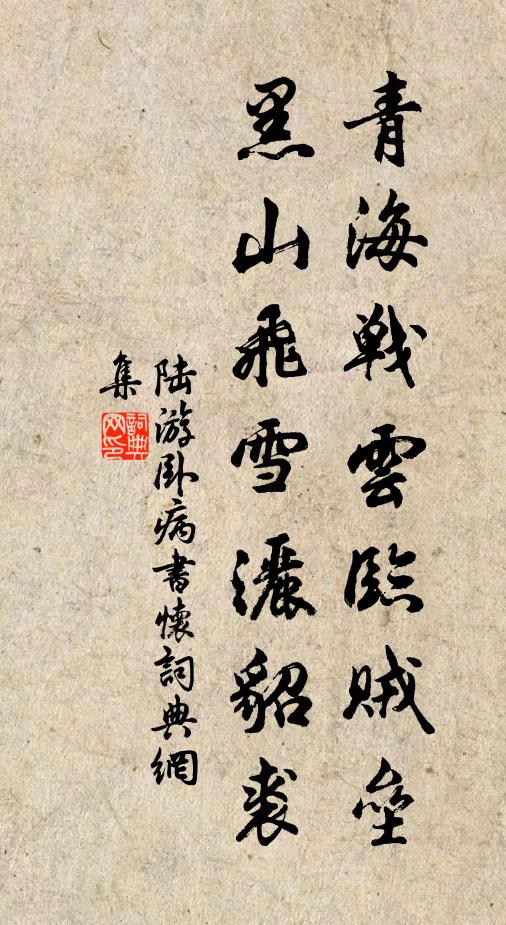 青海戰雲臨賊壘
黑山飛雪灑貂裘
陸游臥病書懷詞典網
集
詞典
网印